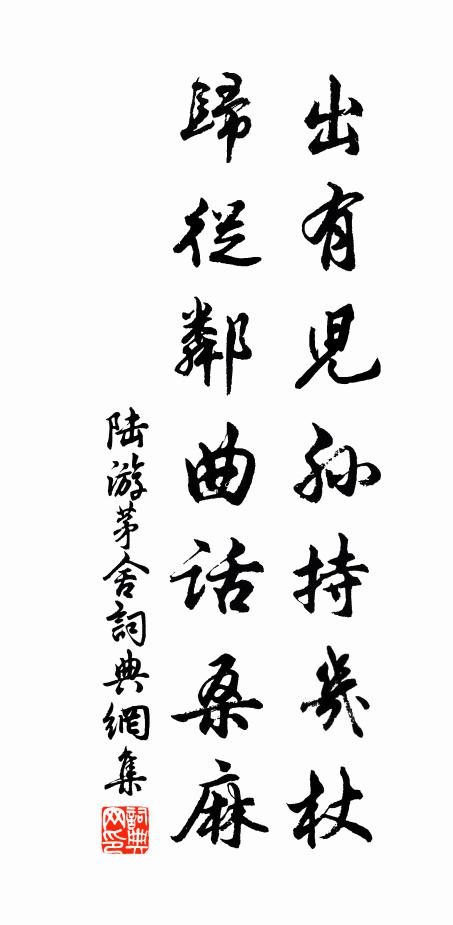 出有兒孫持几杖
歸從鄰曲話桑麻
陸游茅舍詞典網集
詞典網印